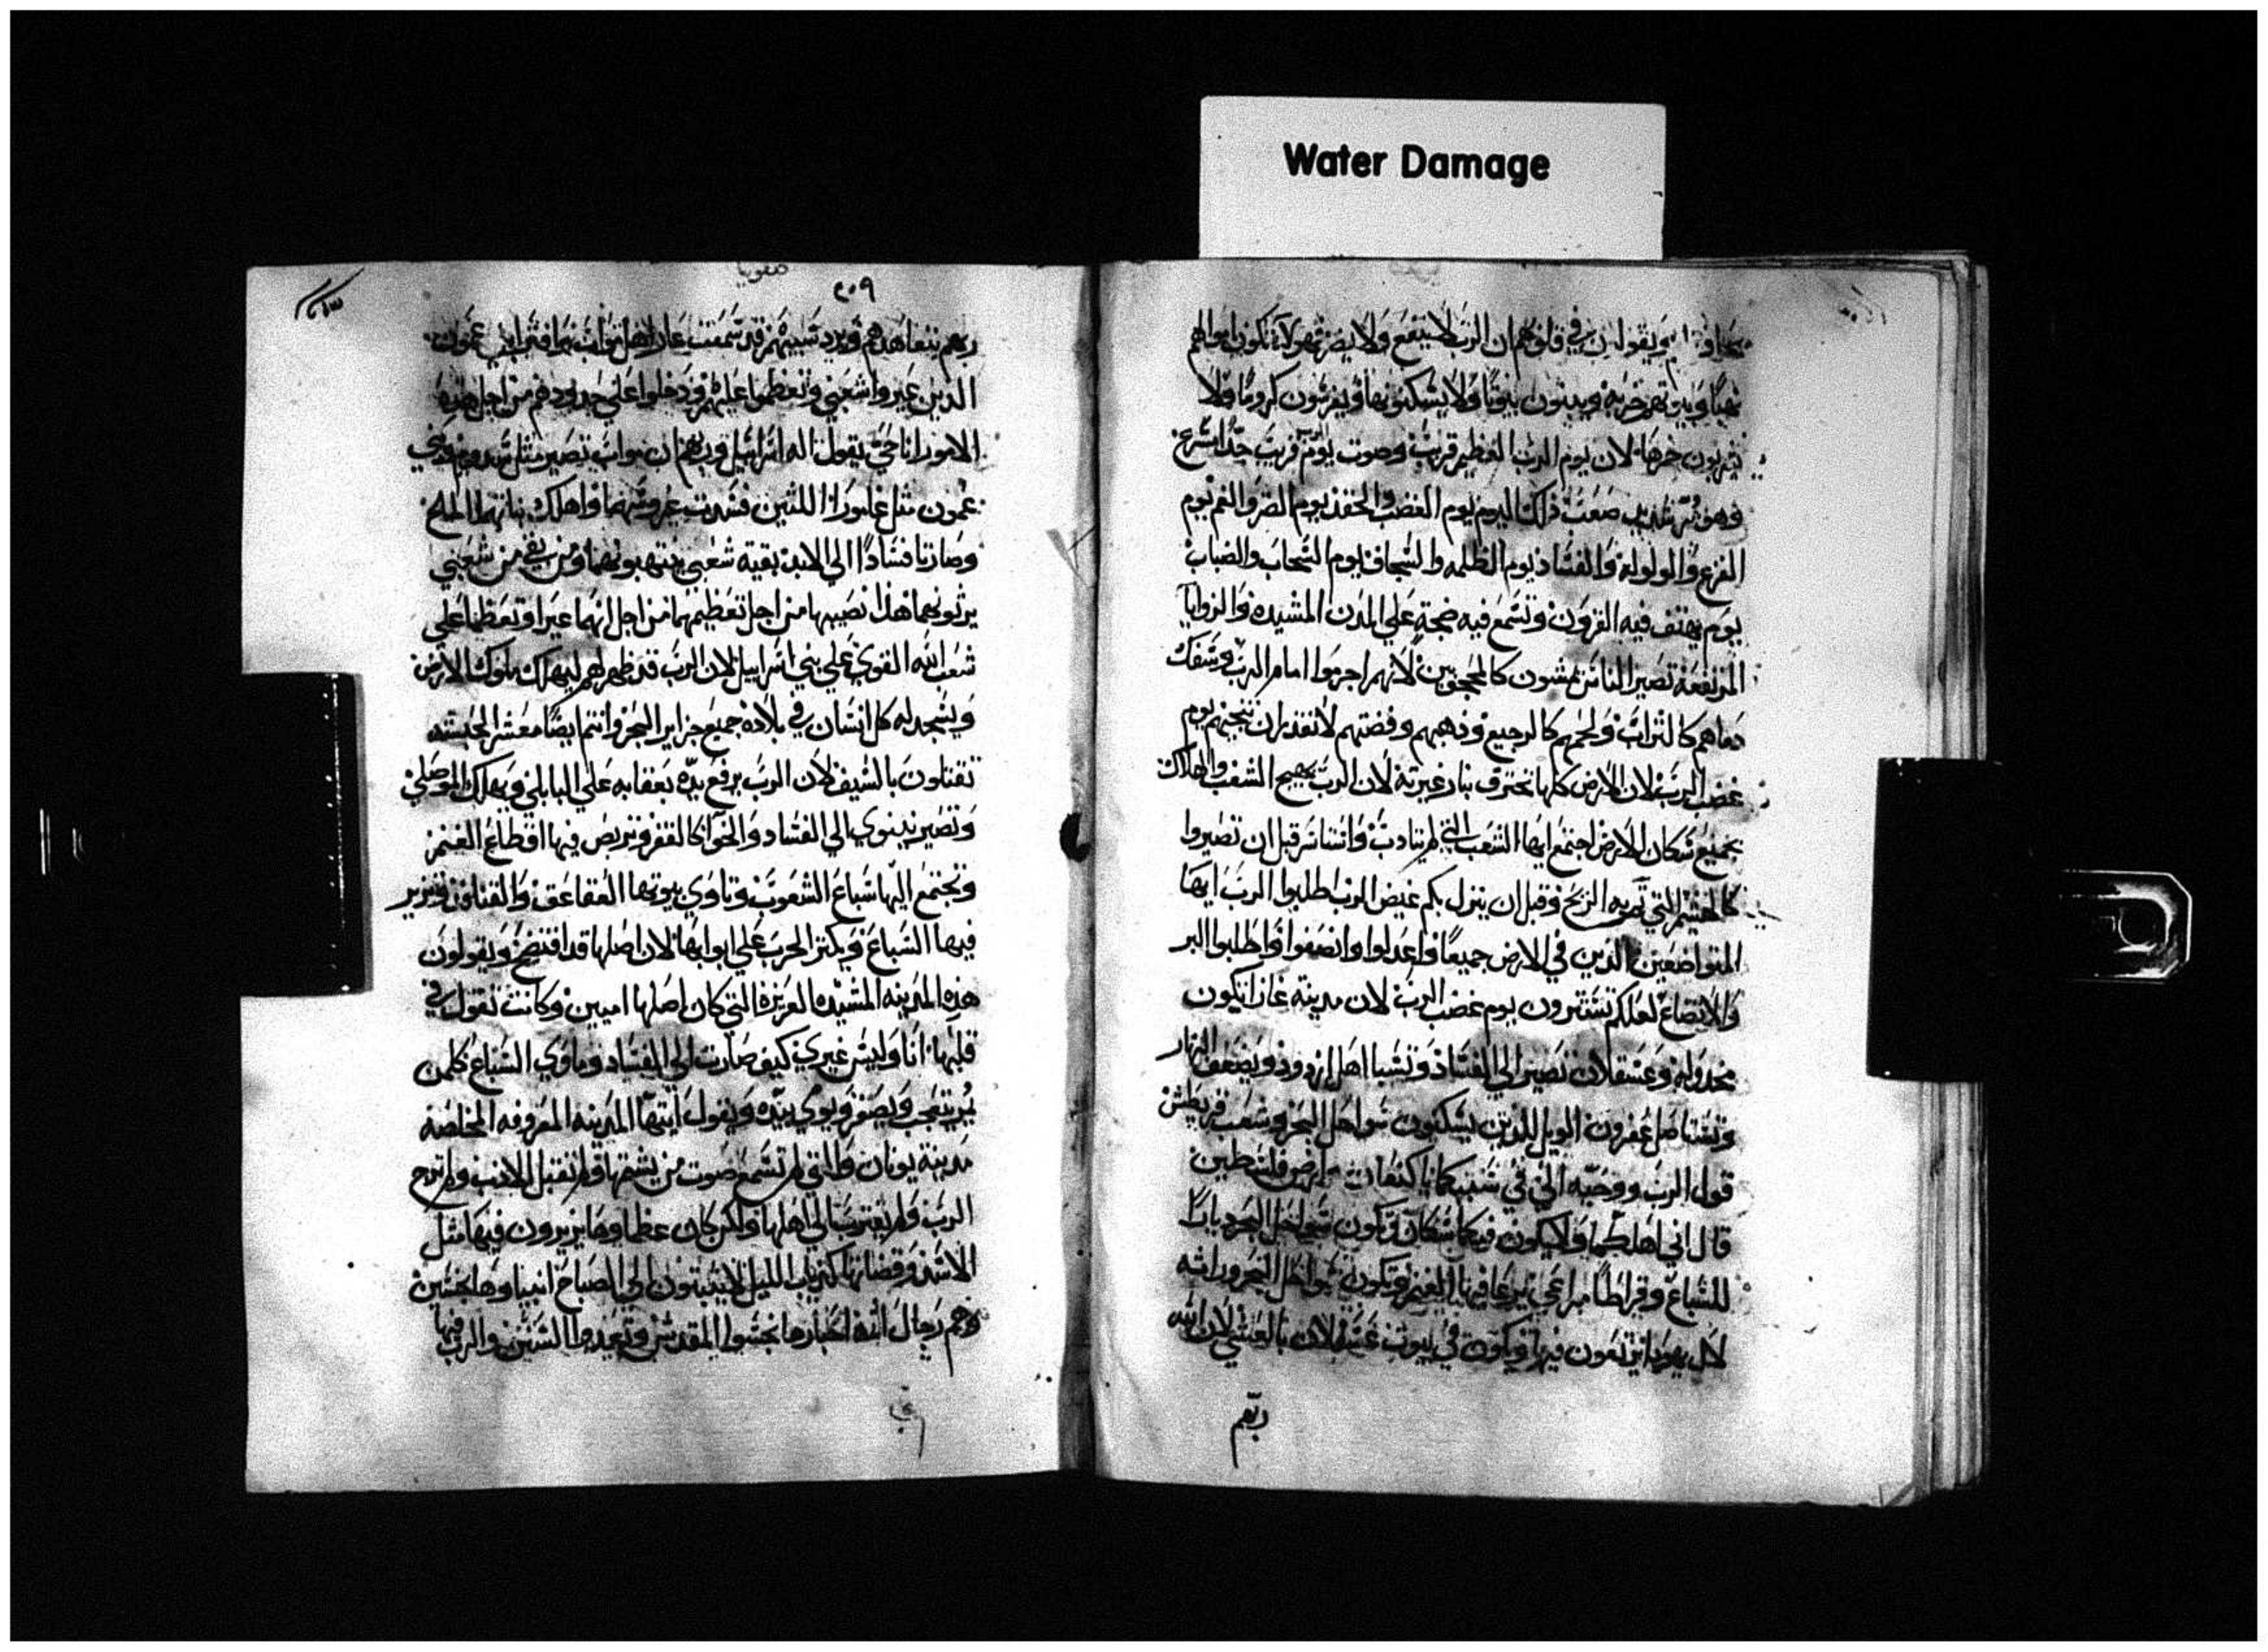 Water Damage
ويقولون في قلوبهم ان الرب لا ينفع ولا يضر فهولاء تكون اموالهم
نهبًا وبيوتهم خربه ويبنون بيوتًا ولا يسكنونها ويغرسون كرومًا ولا
يشربون خمرها لان يوم الرب العظيم قريب وصوت يوم الرب قريب جدًا سريع
وهو مر شديد صعب ذلك اليوم يوم الغضب والحقد يوم الضر والغم يوم
الفزع والولوله والفساد يوم الظلمه والسجاف يوم السحاب والضباب
يوم يهتف فيه القرون وتسمع فيه ضجة علي المدن المشيده والزوايا
المرتفعة تصير الناس يمشون كالمحجوبين لانهم اجرموا امام الرب وسفك
دماهم كالتراب ولحمهم كالرجيع وذهبهم وفضتهم لا تقدر ان تنجيهم يوم
غضب الرب لان الارض كلها تحترق بنار غيرته لان الرب يهيج الشغب والهلاك
بجميع سكان الارض اجتمع ايها الشعب التي لم يتادب واستاسر قبل ان تصيروا
كالهشيم التي تمر به الريح وقبل ان ينزل بكم غيض الرب اطلبوا الرب ايها
المتواضعين الذين في الارض جميعًا واعدلوا وانصفوا واطلبوا البر
والاتضاع لعلكم تستترون يوم غضب الرب لان مدينة غازا تكون
مخدوله وعسقلان تصير الي الفساد وتسبا اهل ازدود ويضعف النهار
وتستاصل عفرون الويل للذين يسكنون سواحل البحر وشعب قريطش
قول الرب ووحيه الي في سببكما يا كنعان ارض فلسطين
قال اني اهلككما ولا يكون فيكما سكان وتكون سواحل البحر ديارًا
للسباع وقراطًا مراعي يرعا فيها الغنم وتكون سواحل البحر وراثه
لال يهودا يرتعون فيها ويكون في بيوت عسقلان بالعشي لان الله
ربهم
صفونيا
٢٠٩
ربهم يتعاهدهم ويرد سبيهم قد سمعت عار اهل مواب بما افترا بني عمون
الذين عيروا شعبي وتعظموا عليهم ودخلوا علي حدودهم من اجل هذه
الامور انا حي يقول اله اسراييل وربهم ان مواب تصير مثل سدوم وبني
عمون مثل غامورا اللتين فسدت غروسهما واهلك نباتهما الملح
وصارتا فسادًا الي الابد بقية شعبي ينتهبونهما ومن بقي من شعبي
يرثونهما هذا نصيبهما من اجل تعظيمهما من اجل انهما عيرا وتعظما علي
شعب الله القوي علي بني اسراييل لان الرب قد ظهر لهم ليهلك ملوك الارض
ويسجد له كل انسان في بلاده جميع جزاير البحر وانتم ايضًا معشر الحبشه
تقتلون بالسيف لان الرب يرفع يده بعقابه علي البابلي ويهلك الموصلي
وتصير نينوي الي الفساد والخوا كالقفر وتربض فيها اقطاع الغنم
وتجتمع اليها سباع الشعوب وتاوي بيوتها العقاعق والقنافذ ويزير
فيها السباع ويكثر الحرب علي ابوابها لان اصلها قد افتضح ويقولون
هذه المدينه المشيده العزيزة التي كان اصلها اميين وكانت تقول في
قلبها انا وليس غيري كيف صارت الي الفساد وماوي السباع كلمن
يمر يتعجب ويصفر ويومي بيده ويقول ايتها المدينه المعروفه المخلصة
مدينة يونان والتي لم تسمع صوت من يشتمها ولم تقبل الادب ولم ترج
الرب ولم تقترب الي اهلها ولكن كان عظماوها يزيرون فيها مثل
الاسد وقضاتها كذياب الليل لا يثبتون الي الصباح انبياوها نجسين
وهم رجال افه احبارها نجسوا المقدس وتعدوا السنن والرب فيها